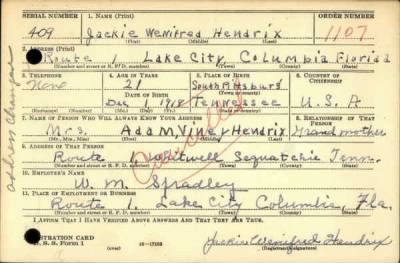 SERIAL NUMBER 1. NAME (Print) ORDER NUMBER
409 Jackie Wenifred Hendrix 1107
(First) (Middle) (Last)
2. ADDRESS (Print)
Route Lake City, Columbia Florida
(Number and street or R. F. D. number) (Town) (County) (State)
3. TELEPHONE 4. AGE IN YEARS 5. PLACE OF BIRTH 6. COUNTRY OF CITIZENSHIP
None 21 South Pittsburg
DATE OF BIRTH (Town or county)
Dec 1918 Tennessee U. S. A
(Exchange) (No.) (Mo.) (Day) (Yr.) (State or country)
7. NAME OF PERSON WHO WILL ALWAYS KNOW YOUR ADDRESS 8. RELATIONSHIP OF THAT PERSON
Mrs. Adam Viney Hendrix Grandmother
(Mr., Mrs., Miss) (First) (Middle) (Last)
9. ADDRESS OF THAT PERSON
Route 1. Whitwell Sequatchie Tenn.
(Number and street or R. F. D. number) (Town) (County) (State)
10. EMPLOYER'S NAME
W. M. Spradley
11. PLACE OF EMPLOYMENT OR BUSINESS
Route 1. Lake City Columbia, Fla.
(Number and street or R. F. D. number) (Town) (County) (State)
I AFFIRM THAT I HAVE VERIFIED ABOVE ANSWERS AND THAT THEY ARE TRUE.
REGISTRATION CARD
D. S. S. Form 1 (over) 16—17105
Jackie Wenifred Hendrix
(Registrant's signature)
address change
Cancelled